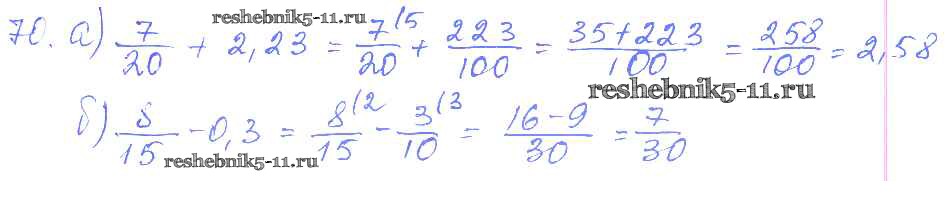 reshebnik5-11.ru
70. а) 7/20 + 2,23 = 7(5/20 + 223/100 = 35+223/100 = 258/100 = 2,58
reshebnik5-11.ru
б) 8/15 - 0,3 = 8(2/15 - 3(3/10 = 16-9/30 = 7/30
reshebnik5-11.ru